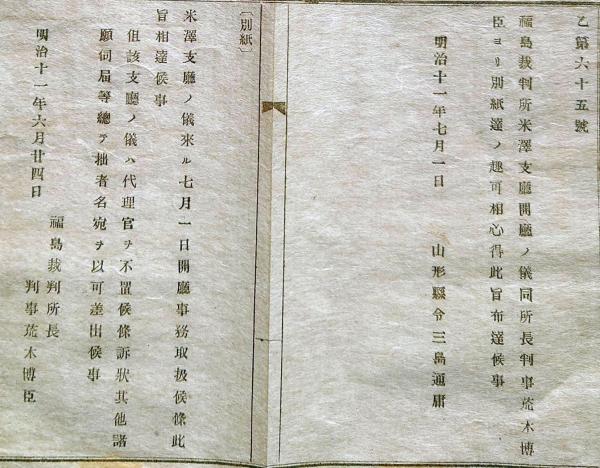 乙第六十五號
福島裁判所米澤支廳開廳ノ儀同所長判事荒木博
臣ヨリ別紙達ノ趣可相心得此旨布達候事
明治十一年七月一日　山形縣令三島通庸
〔別紙〕
米澤支廳ノ儀來ル七月一日開廳事務取扱候條此
旨相達候事
但該支廳ノ儀ハ代理官ヲ不置候條訴狀其他諸
願伺屆等總テ拙者名宛ヲ以可差出候事
福島裁判所長
明治十一年六月廿四日　判事荒木博臣